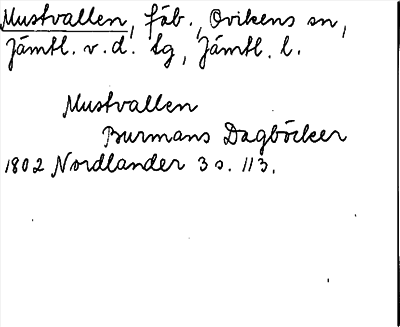 Mustvallen, fäb., Ovikens sn,
Jämtl. v. d. tg, Jämtl. l.
Mustvallen
Burmans Dagböcker
1802 Nordlander 3 s. 113.